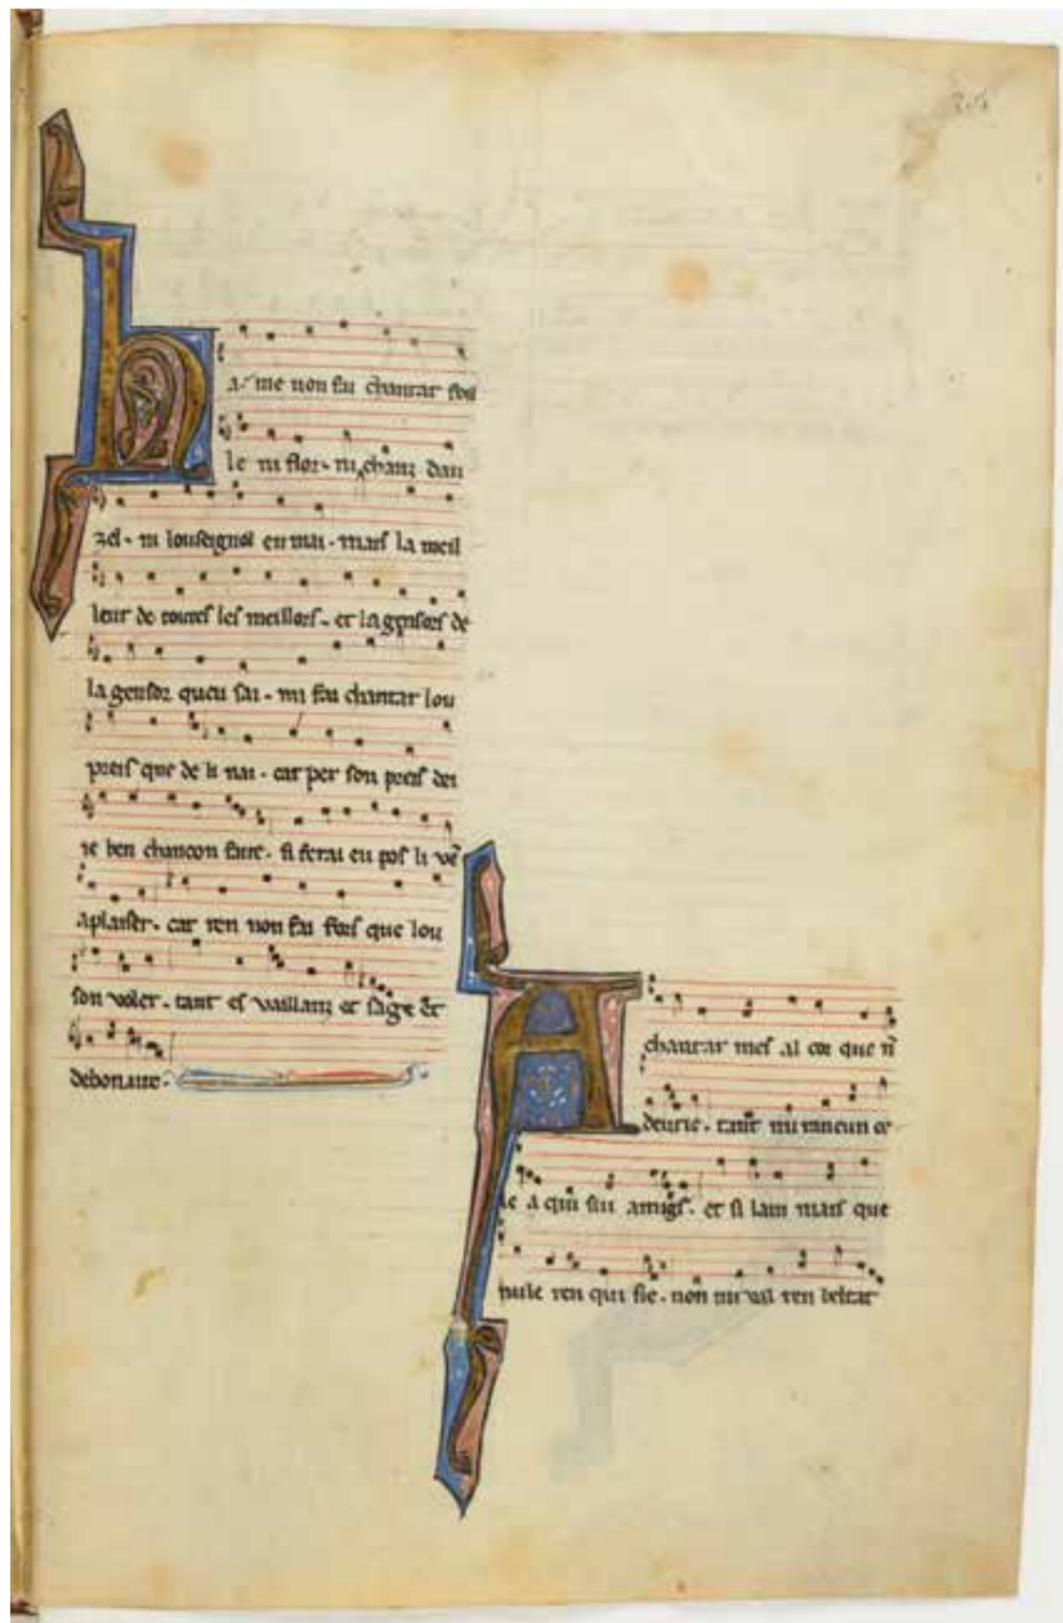 a me non fai chantar foil
le ni flor. ni chanz dau
zel. ni louseignol en mai. mais la meil
leur de toutes les meillors. et la gensors de
la gensor queu sai. mi fai chantar lou
preis que de li nai. car per son preis dei
ie ben chancon faire. si ferai eu pos li ve
a plaiser. car ren non fai fors que lou
son voler. tant es vaillanz et sage et
debonaire.
A
chantar mes al cor que n
deurie. tant mi rancun ce
le a qui sui amigs. et si lam mais que
nule ren qui sie. non mi val ren beltat